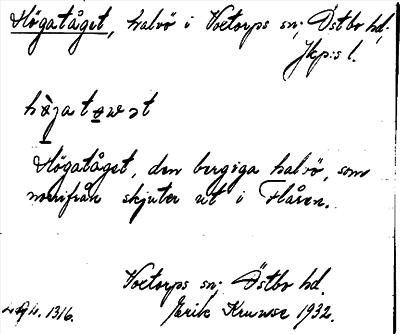 Högatåget, halvö i Voxtorps sn; Östbo hd,
Jkp:s l.
Högatåget, den bergiga halvö, som
norrifrån skjuter ut i Flåren.
Voxtorps sn; Östbo hd.
1316. Jerik Krunse 1932.